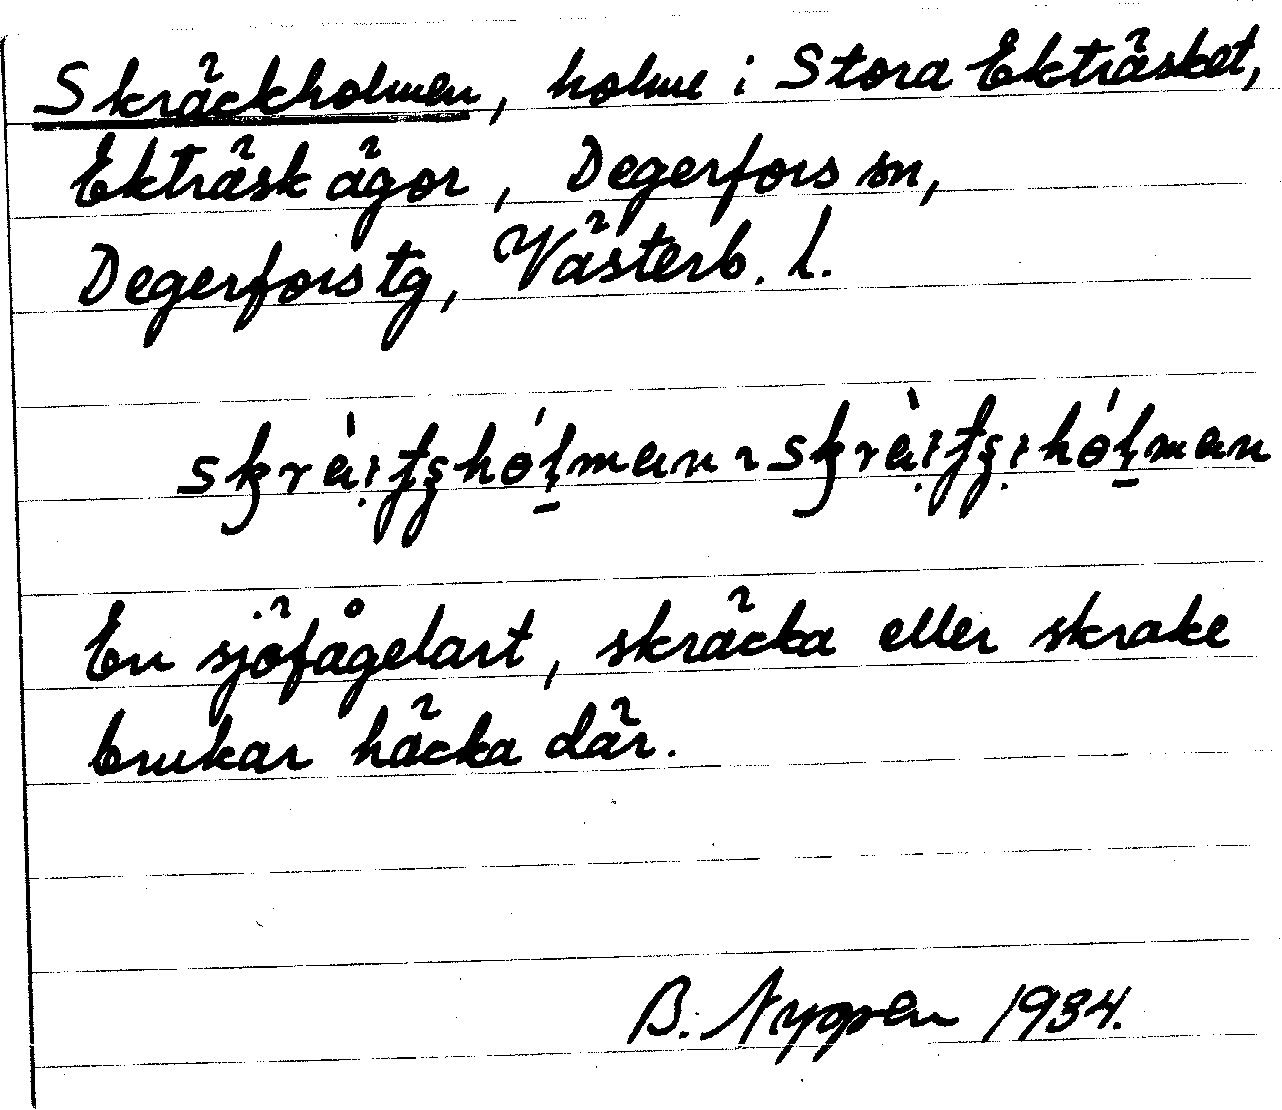 Skräckholmen, holme i Stora Ekträsket,
Ekträsk ägor, Degerfors sn,
Degerfors tg, Västerb. l.
En sjöfågelart, skräcka eller skrake
brukar häcka där.
B. Nygren 1934.